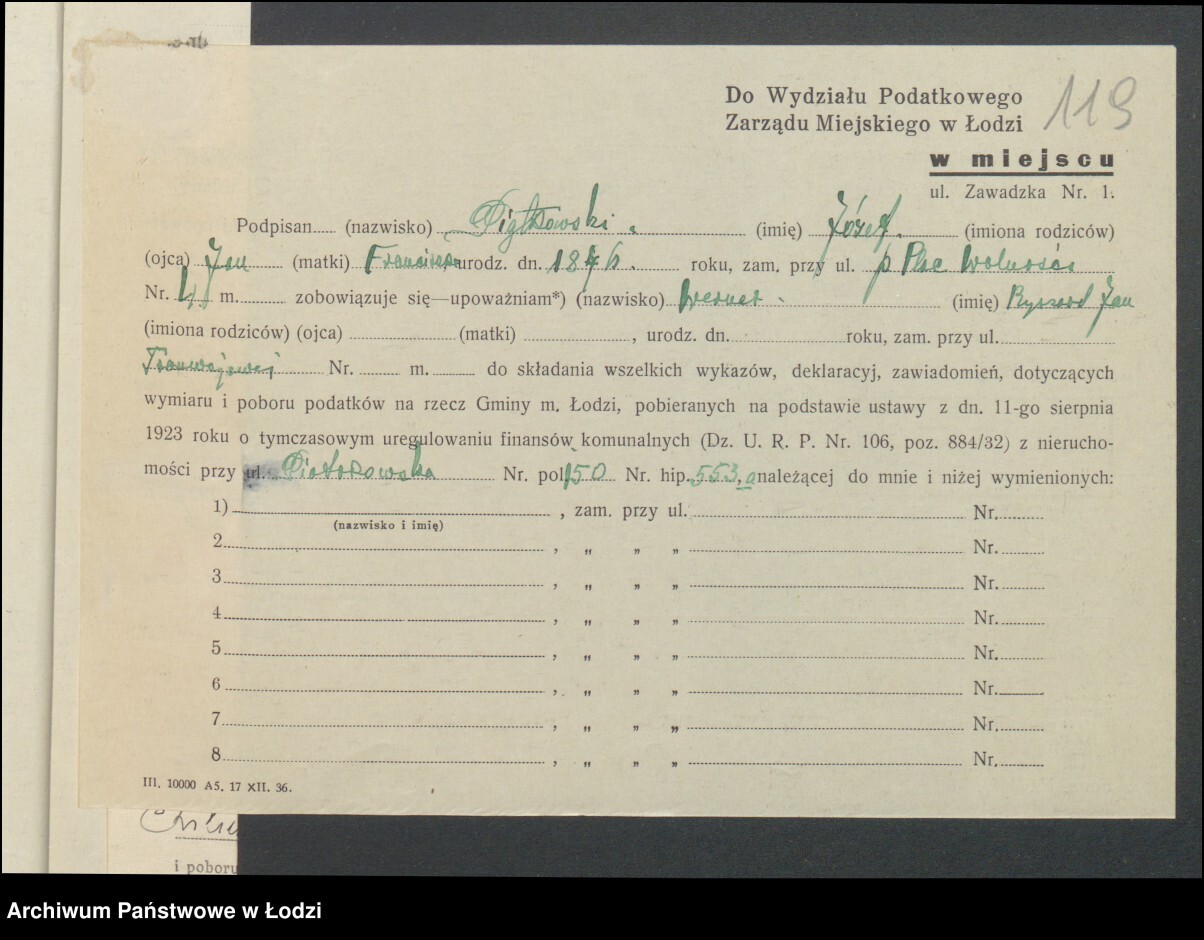 Do Wydziału Podatkowego
Zarządu Miejskiego w Łodzi
119
w miejscu
ul. Zawadzka Nr. 1.
Podpisan...... (nazwisko) Piątkowski. (imię) Józef. (imiona rodziców)
(ojca) Jan (matki) Franciszka urodz. dn. 1876. roku, zam. przy ul. p Plac Wolności
Nr. 4 m. zobowiązuje się—upoważniam*) (nazwisko) Werner. (imię) Ryszard Jan
(imiona rodziców) (ojca) (matki) , urodz. dn. roku, zam. przy ul.
Tramwajowej Nr. m. do składania wszelkich wykazów, deklaracyj, zawiadomień, dotyczących
wymiaru i poboru podatków na rzecz Gminy m. Łodzi, pobieranych na podstawie ustawy z dn. 11-go sierpnia
1923 roku o tymczasowym uregulowaniu finansów komunalnych (Dz. U. R. P. Nr. 106, poz. 884/32) z nierucho-
mości przy ul. Piotrkowska Nr. pol. 150 Nr. hip. 553, a należącej do mnie i niżej wymienionych:
1) , zam. przy ul. Nr.
(nazwisko i imię)
2 , „ „ „ Nr.
3 , „ „ „ Nr.
4 , „ „ „ Nr.
5 , „ „ „ Nr.
6 , „ „ „ Nr.
7 , „ „ „ Nr.
8 , „ „ „ Nr.
III. 10000 A5. 17 XII. 36.
i poboru
Archiwum Państwowe w Łodzi